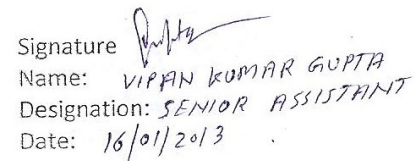 Signature
Name: VIPAN KUMAR GUPTA
Designation: SENIOR ASSISTANT
Date: 16/01/2013